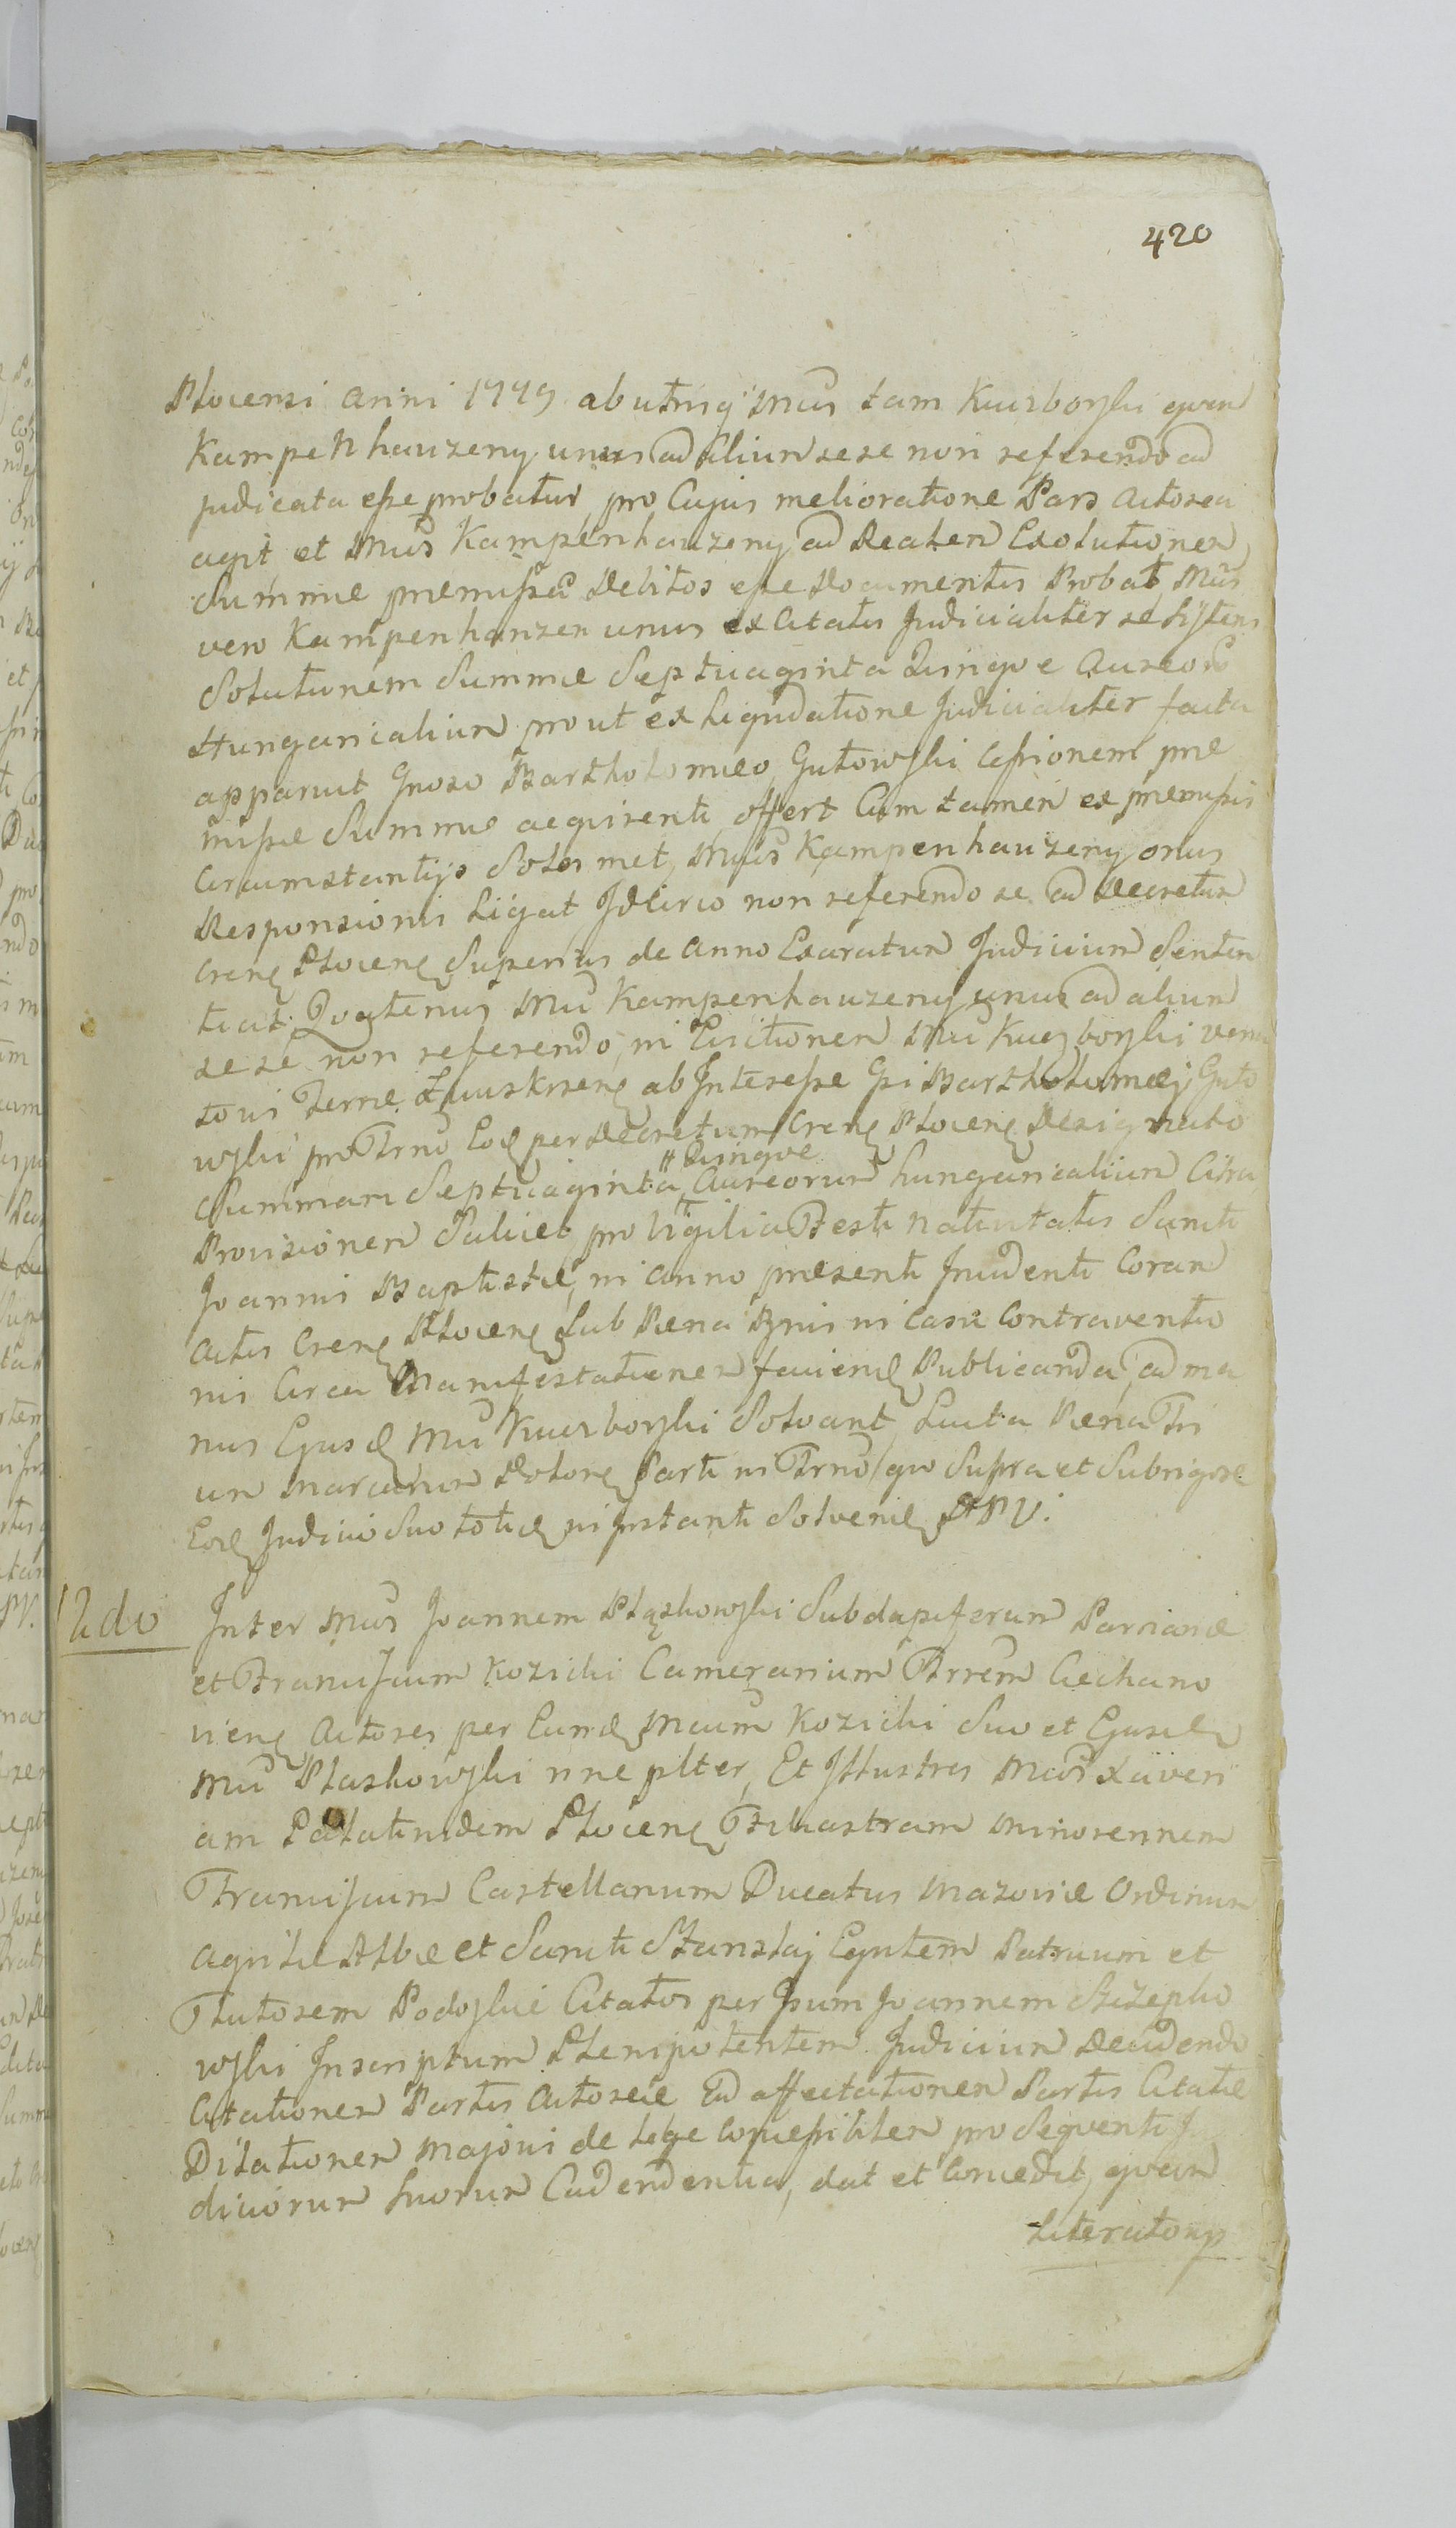 420
Plocensi Anni 1779 ab utriusq Mcis tam Kuczborski qvam
Kampenhauzeny unus ad alium sese non referendo ad
judicata esse probatur, pro Cujus melioratione Pars Actorea
agit et Mcus Kampenhauzeny ad Realem Exolutionem
Summæ præmissæ Debitos esse Documentis Probat Mcus
vero Kampenhauzen unus ex Citatis Judicialiter se Sistens
Solutionem Summæ Septuaginta Quinqve Aureorum
Hungaricalium prout ex Liqudatione Judicialiter facta
apparuit Gnoso Bartholomæo Gutowski Cessionem præ
missæ Summæ aeqvirenti, offert Cum tamen ex præmissis
Circumstantijs Solos met, Mcos Kampenhauzeny onus
Responsionis Ligat Idcirco non referendo se ad Decretum
Crens Plocens Superius de Anno Exaratum Judicium Senten
tiat. Qvatenus Mci Kampenhauzeny unus ad alium
sese non referendo, in Evictionem Mci Kuczborski vena
toris Terræ Zawskrzens ab Interesse Gsi Bartholomæj Guto
wski pro Trno Eod per Decretum Crens Plocens Designato
Summam Septuaginta Aureorum hungaricalium Citra
" Quinqve
Provisionem Salicet pro Vigilia Festi Nativitatis Sancti
Joannis Baptistæ, in Anno præsenti Incidenti Coram
Actis Crens Plocens Sub Pæna Bnis in Casu Contraventio
nis Circa Manifestationem faciend Publicanda, ad ma
nus Ejusd Mci Kuczborski Solvant Lucta Pæna Tri
um Marcarum Polon Parti in Trno qvo Supra et Sub rigore
Eod Judicio Suo totid in Instanti Solvend DPV.
12do Inter Mcos Joannem Pląskowski Subdapiferum Parcianæ
et Franciscum Kozicki Camerarium Trrem Ciechano
viens Actores per Eund Mcum Kozicki Suo et Ejusd
Mci Pląskowski nne plter, Et Illustres Mcos Xaveri
am Palatinidem Plocens Filiastram Minorennem
Franciscum Castellanum Ducatus Mazoviæ Ordinum
Aqvilæ Albæ et Sancti Stanislaj Eqvitem Patruum et
Tutorem Podoskie Citatos per Gsum Joannem Szczepko
wski Inscriptum Plenipotentem. Judicium Decidendo
Citationem Partis Actoreæ Ad affectationem Partis Citatæ
Dilationem Majori de Lege Concessibilem pro Seqventi Ju
diciorum Suorum Cadendentia, dat et Concedit, qvam
Literatorijs